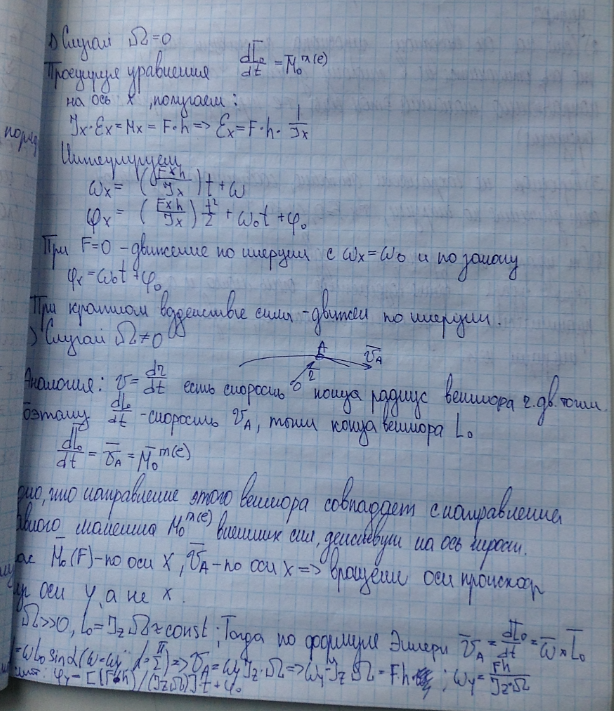 1) Случай Ω=0
Проецируя уравнения dL̄₀/dt = M̄₀ᵐ⁽ᵉ⁾
на ось x, получаем:
Jx·Ɛx = Mx = F·h => Ɛx = F·h· 1/Jx
поряд
Интегрируем
ωx = (Fxh/Jx)t + ω
φx = (Fxh/Jx) t²/2 + ω₀t + φ₀
При F=0 - движение по инерции с ωx=ω₀ и по закону
φx = ω₀t + φ₀
При кратком воздействие силы - движен по инерции.
) Случай Ω≠0
A
v̄A
O
r̄
Аналогия: v̄ = dr/dt есть скорость конца радиус вектора r. дв. точки
оэтому dL₀/dt - скорость v̄A, точки конца вектора L₀
dL̄₀/dt = v̄A = M̄₀ᵐ⁽ᵉ⁾
дно, что направление этого вектора совпадает с направления
авного момента M̄₀ᵐ⁽ᵉ⁾ внешних сил, действующ на ось гироск.
ас M̄₀(F) - по оси X, v̄A - по оси x => вращении оси происход
оси y, а не x.
Ω>>0, L₀ = JzΩ ≈ const; Тогда по формуле Эйлера v̄A = dL̄₀/dt = ω̄ × L̄₀
= ωL₀ sinα (ω=ωy α=π/2) => vA = ωy Jz·Ω => ωy Jz Ω = Fh ; ωy = Fh/Jz·Ω
φy = [(F·h)/(JzΩ)]t + φ₀